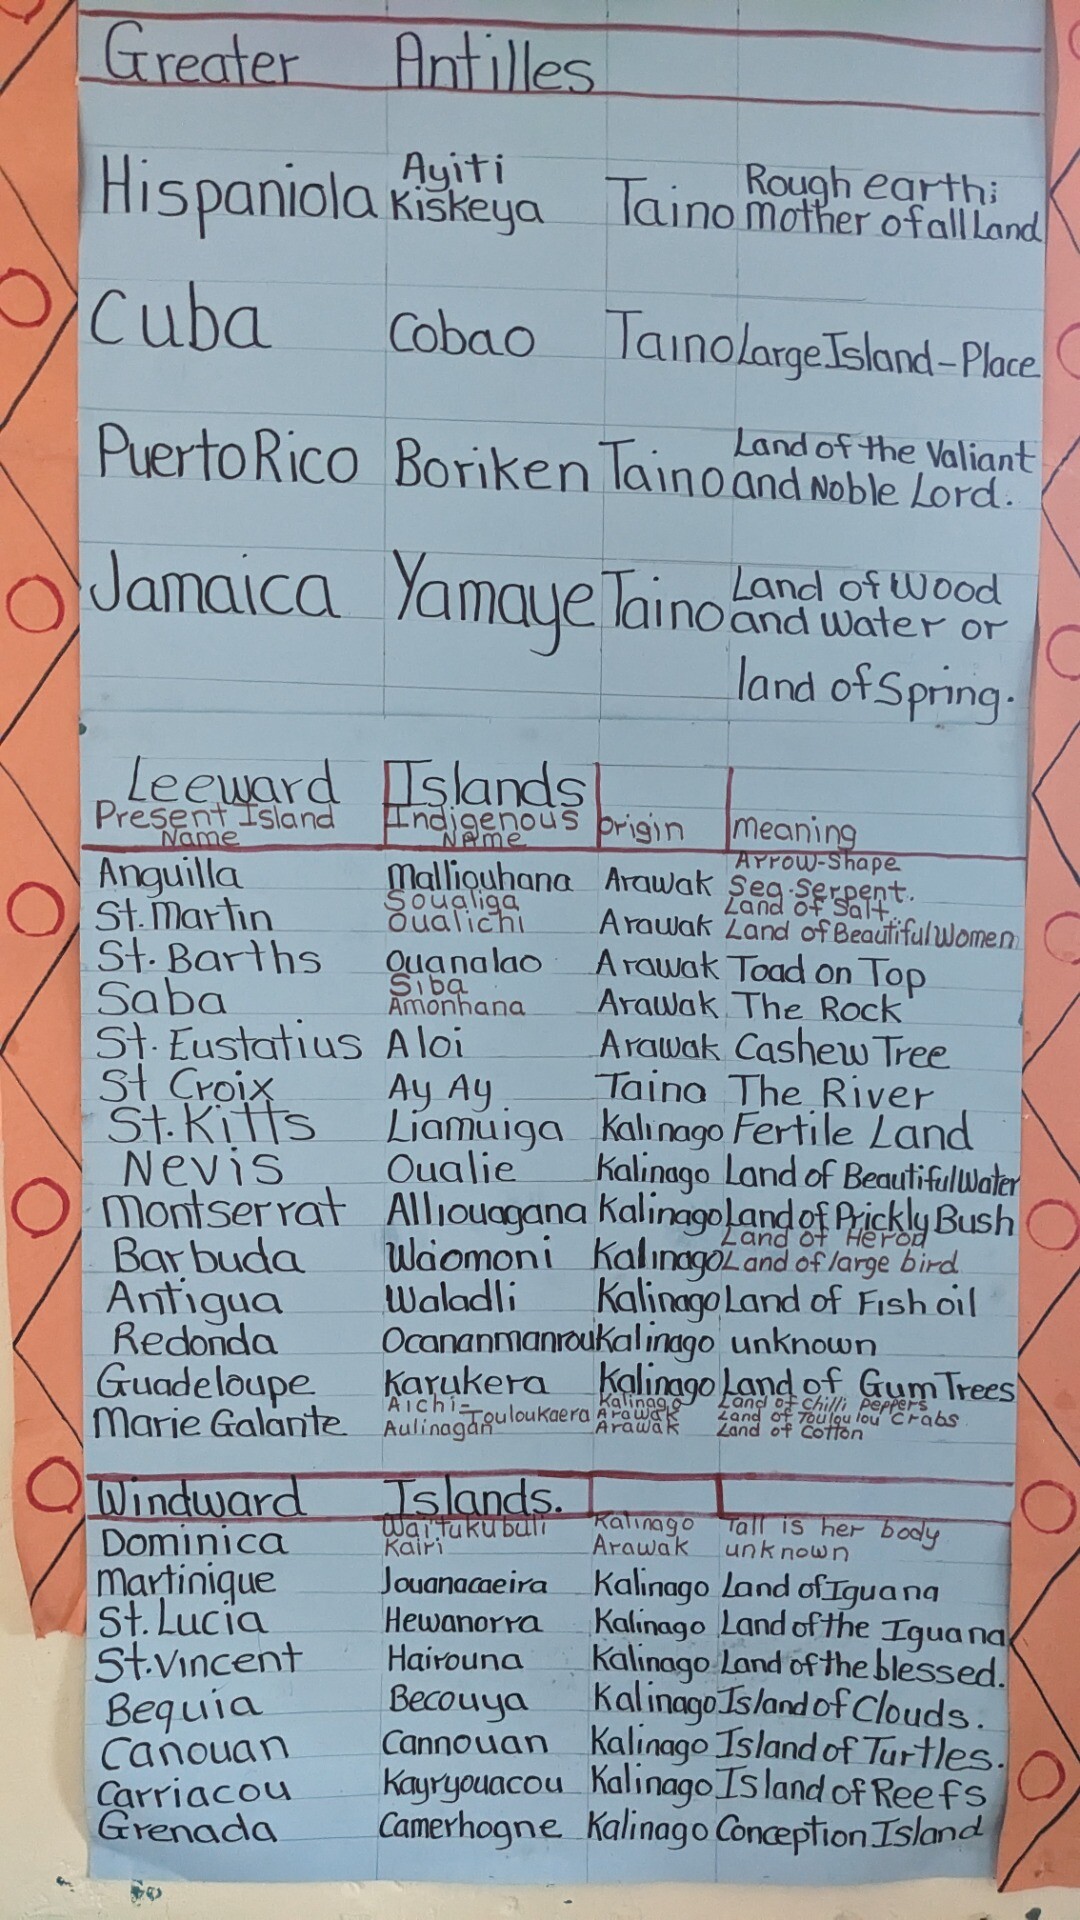 Greater Antilles
Hispaniola Ayiti Kiskeya Taino Rough earth; mother of all Land
Cuba Cobao Taino Large Island-Place
Puerto Rico Boriken Taino Land of the Valiant and Noble Lord.
Jamaica Yamaye Taino Land of Wood and Water or land of Spring.
Leeward Islands
Present Island Name Indigenous Name origin meaning
Anguilla Malliouhana Arawak Arrow-Shape Sea-Serpent.
St. Martin Soualiga Oualichi Arawak Land of Salt. Land of Beautiful Women
St. Barths Ouanalao Arawak Toad on Top
Saba Siba Amonhana Arawak The Rock
St. Eustatius Aloi Arawak Cashew Tree
St Croix Ay Ay Taino The River
St. Kitts Liamuiga Kalinago Fertile Land
Nevis Oualie Kalinago Land of Beautiful Water
Montserrat Alliouagana Kalinago Land of Prickly Bush
Barbuda Waomoni Kalinago Land of Herod Land of large bird
Antigua Waladli Kalinago Land of Fish oil
Redonda Ocananmanrou Kalinago unknown
Guadeloupe Karukera Kalinago Land of Gum Trees
Marie Galante Aichi- Touloukaera Aulinagan Kalinago Arawak Arawak Land of chilli peppers Land of Touloulou crabs Land of Cotton
Windward Islands.
Dominica Waitukubuli Kairi Kalinago Arawak Tall is her body unknown
Martinique Jouanacaeira Kalinago Land of Iguana
St. Lucia Hewanorra Kalinago Land of the Iguana
St. Vincent Hairouna Kalinago Land of the blessed.
Bequia Becouya Kalinago Island of Clouds.
Canouan Cannouan Kalinago Island of Turtles.
Carriacou Kayryouacou Kalinago Island of Reefs
Grenada Camerhogne Kalinago Conception Island